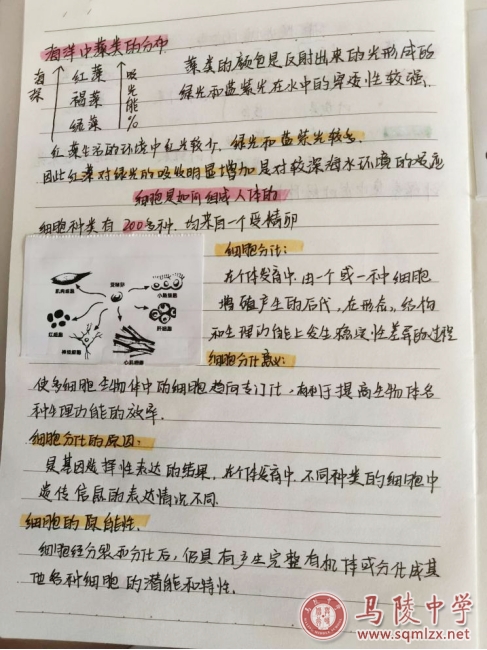 海洋中藻类的分布
海深 红藻 吸光能%
褐藻
绿藻
藻类的颜色是反射出来的光形成的
绿光和蓝紫光在水中的穿透性较强.
红藻生活的环境中红光较少, 绿光和蓝紫光较多
因此红藻对绿光的吸收明显增加是对较深海水环境的适应
细胞是如何组成人体的
细胞种类有200多种, 均来自一个受精卵
肌肉细胞
受精卵
小肠细胞
红细胞
肝细胞
神经细胞
心肌细胞
细胞分化:
在个体发育中, 由一个或一种细胞
增殖产生的后代, 在形态, 结构
和生理功能上发生稳定性差异的过程
细胞分化意义:
使多细胞生物体中的细胞趋向专门化, 有利于提高生物体各
种生理功能的效率.
细胞分化的原因:
是基因选择性表达的结果, 在个体发育中, 不同种类的细胞中
遗传信息的表达情况不同.
细胞的全能性.
细胞经分裂和分化后, 仍具有产生完整有机体或分化成其
他各种细胞的潜能和特性.
马陵中学
www.sqmlzx.net